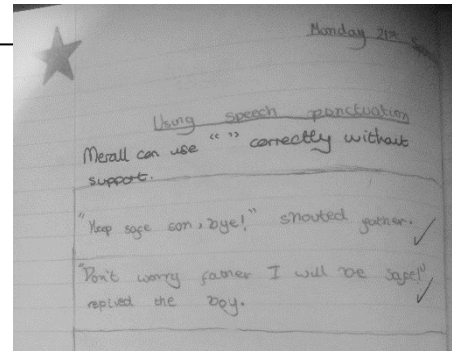 Monday 21st
Using speech punctuation
Merall can use “ ” correctly without
support.
"Keep safe son, bye!" shouted father.
"Don't worry father I will be safe!"
replied the boy.